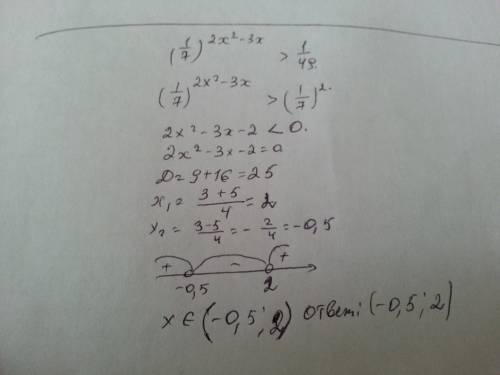 (1/7)^(2x²-3x) > 1/49.
(1/7)^(2x²-3x) > (1/7)^2.
2x²-3x-2 < 0.
2x²-3x-2=0
D=9+16=25
x₁= (3+5)/4 = 2
x₂= (3-5)/4 = - 2/4 = -0,5
+ - +
-0,5 2
x ∈ (-0,5; 2) ответ: (-0,5; 2)